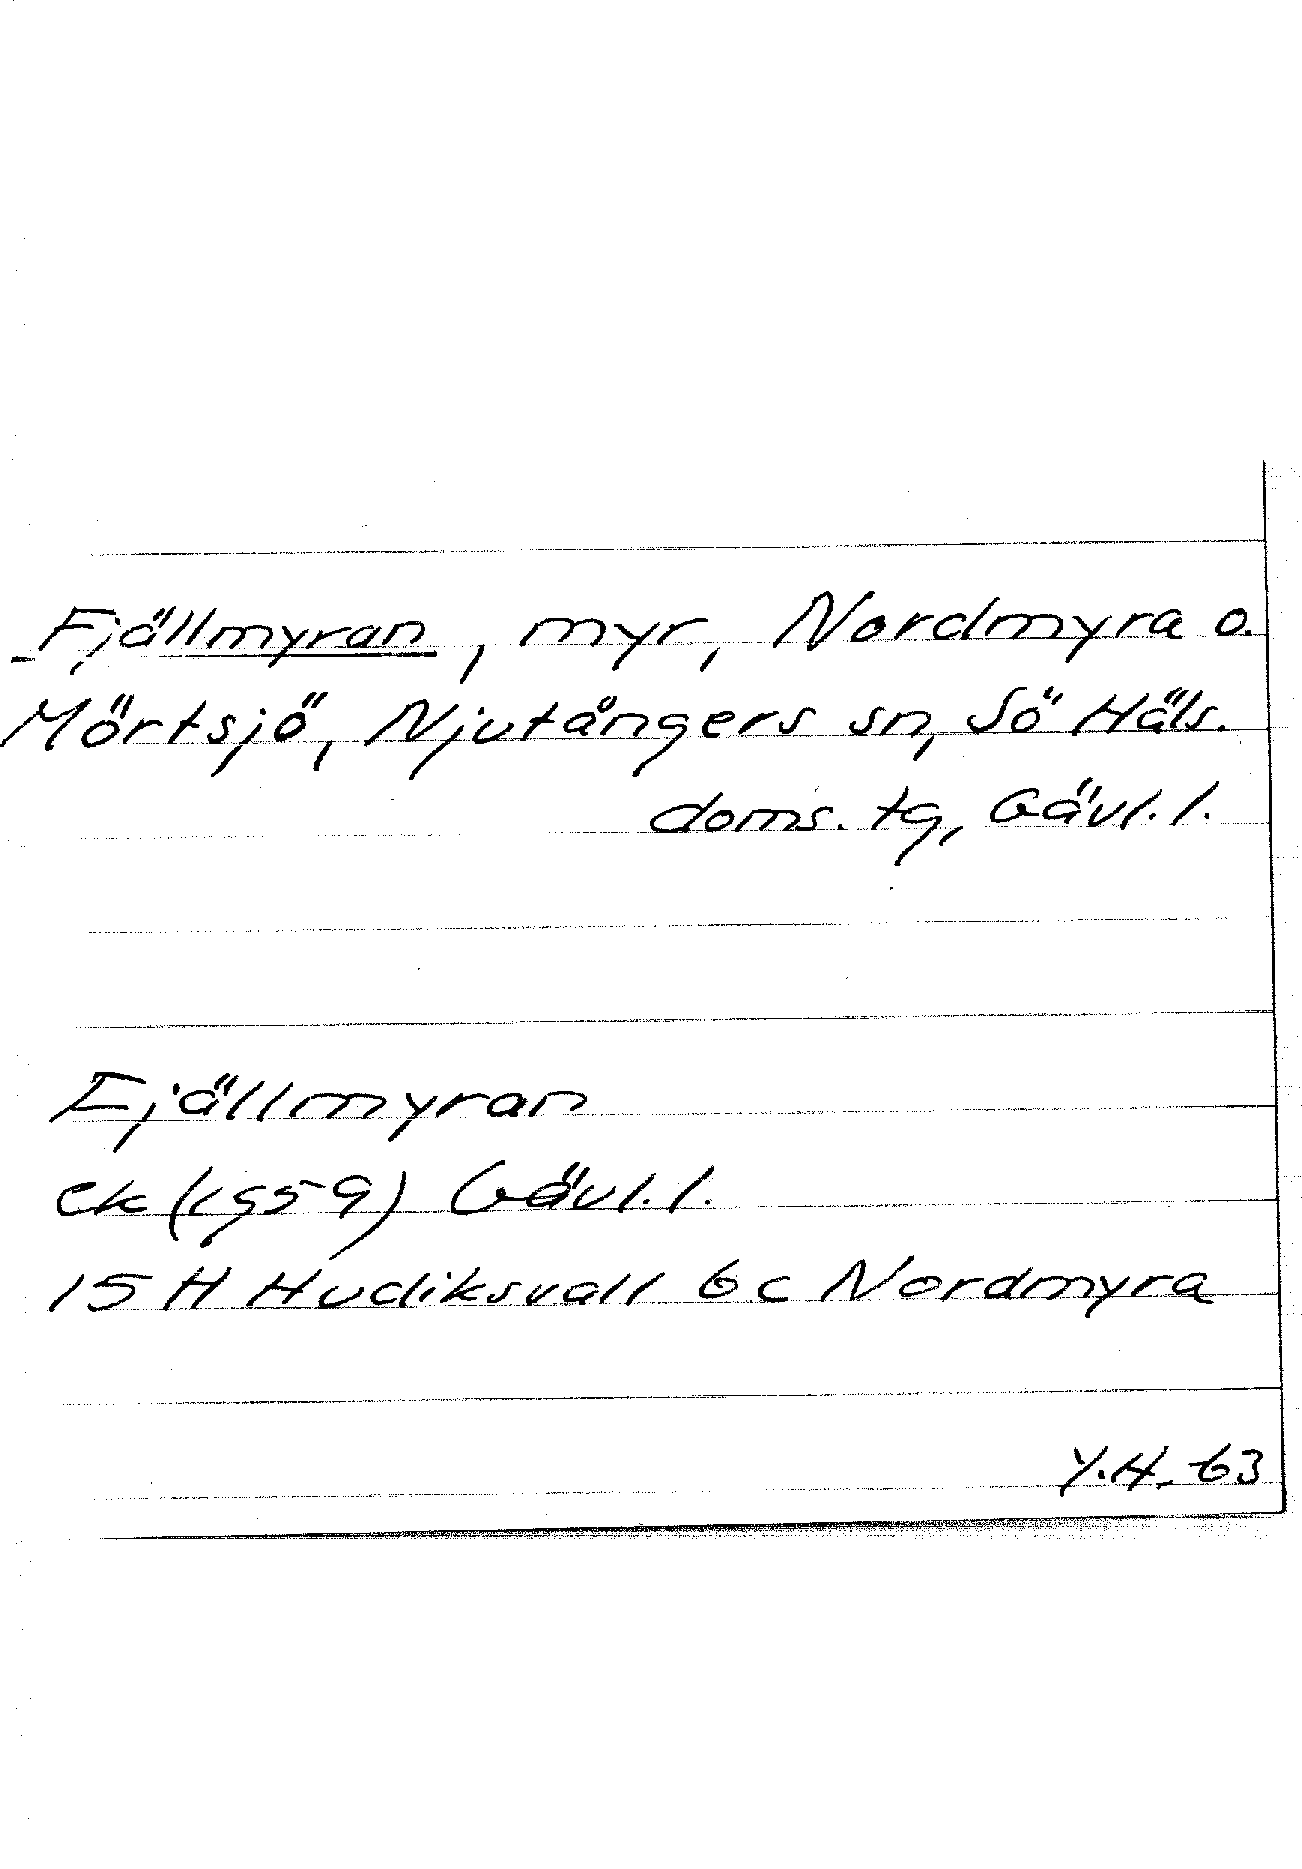 Fjällmyran, myr, Nordmyra o.
Mörtsjö, Njutångers sn, Sö Häls.
doms. tg, Gävl. l.
Fjällmyran
ek (1959) Gävl. l.
15 H Hudiksvall 6 c Nordmyra
Y.H. 63